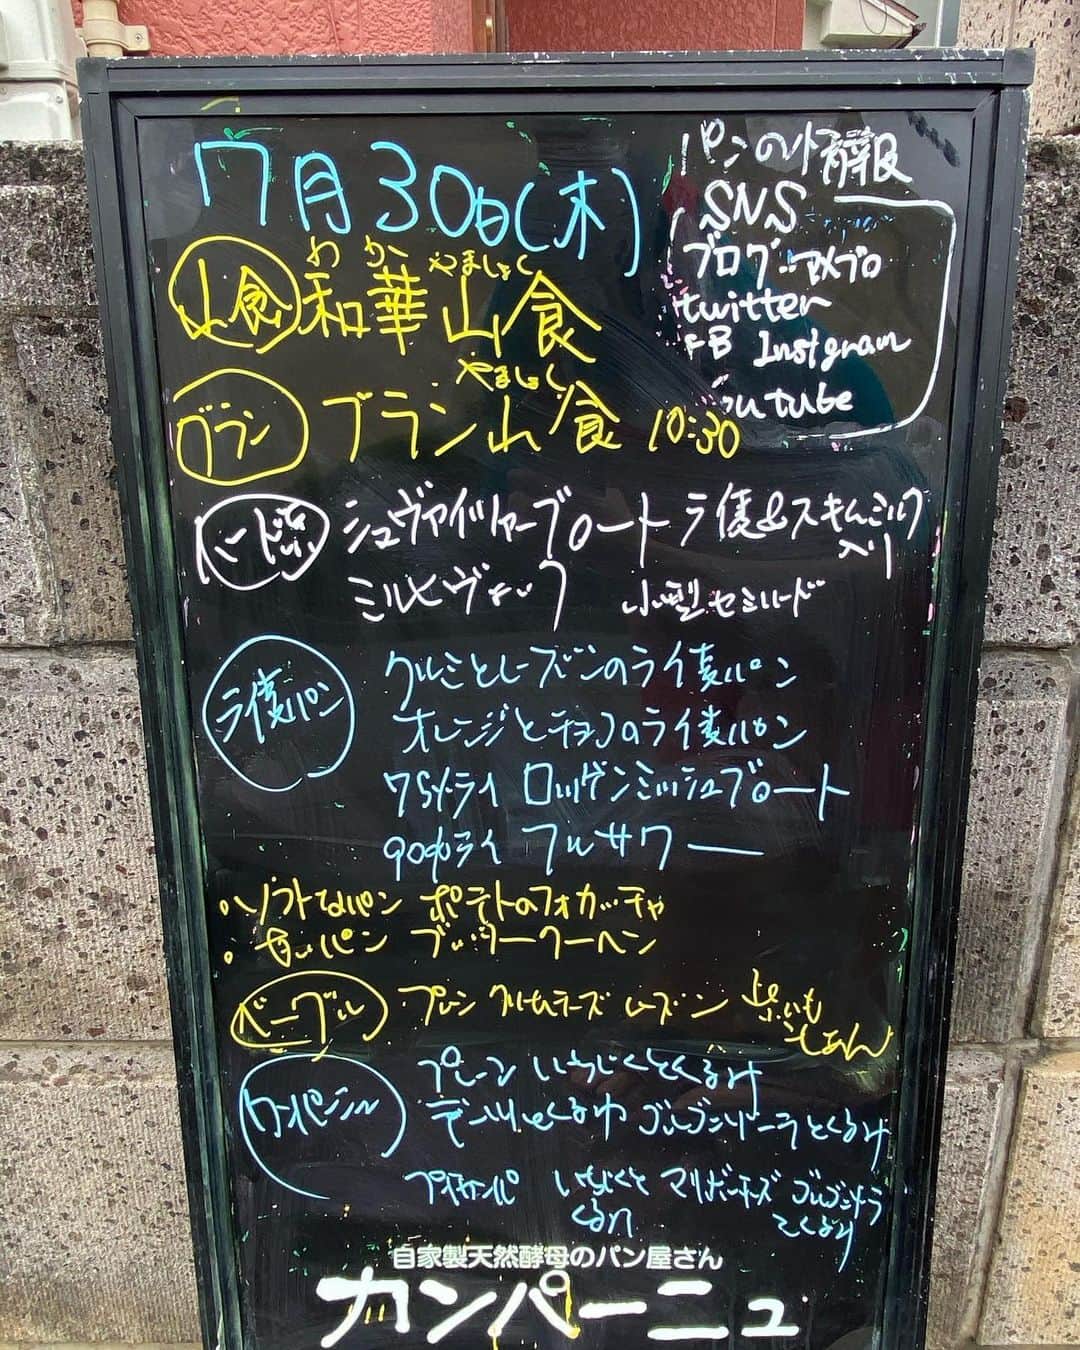 7月30日(木)
パンの情報
SNS
ブログ…アメブロ
twitter
FB Instgram
outube
山食 和華山食
わか やましょく
ブラン ブラン山食 10:30
やましょく
ハード系 シュヴァイツァーブロート ライ麦&スキムミルク
入り
ミルヒヴェック 小型セミハード
ライ麦パン クルミとレーズンのライ麦パン
オレンジとチョコのライ麦パン
75%ライ ロッゲンミッシュブロート
90%ライ フルサワー
・ソフトなパン ポテトのフォカッチャ
・甘いパン ブッタークーヘン
ベーグル プレーン クリームチーズ レーズン 紫いも
あん
カンパーニュ プレーン いちじくとくるみ
とくるみ とくるみ
プチカンパ いちじくと マリボーチーズ
くるみ とくるみ
自家製天然酵母のパン屋さん
カンパーニュ